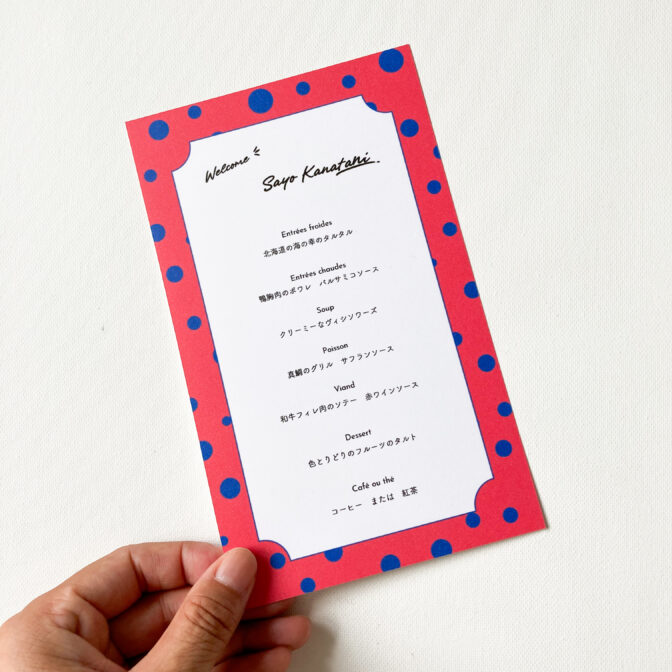 Welcome
Sayo Kanatani.
Entrées froides
北海道の海の幸のタルタル
Entrées chaudes
鴨胸肉のポワレ　バルサミコソース
Soup
クリーミーなヴィシソワーズ
Poisson
真鯛のグリル　サフランソース
Viand
和牛フィレ肉のソテー　赤ワインソース
Dessert
色とりどりのフルーツのタルト
Café ou thé
コーヒー　または　紅茶